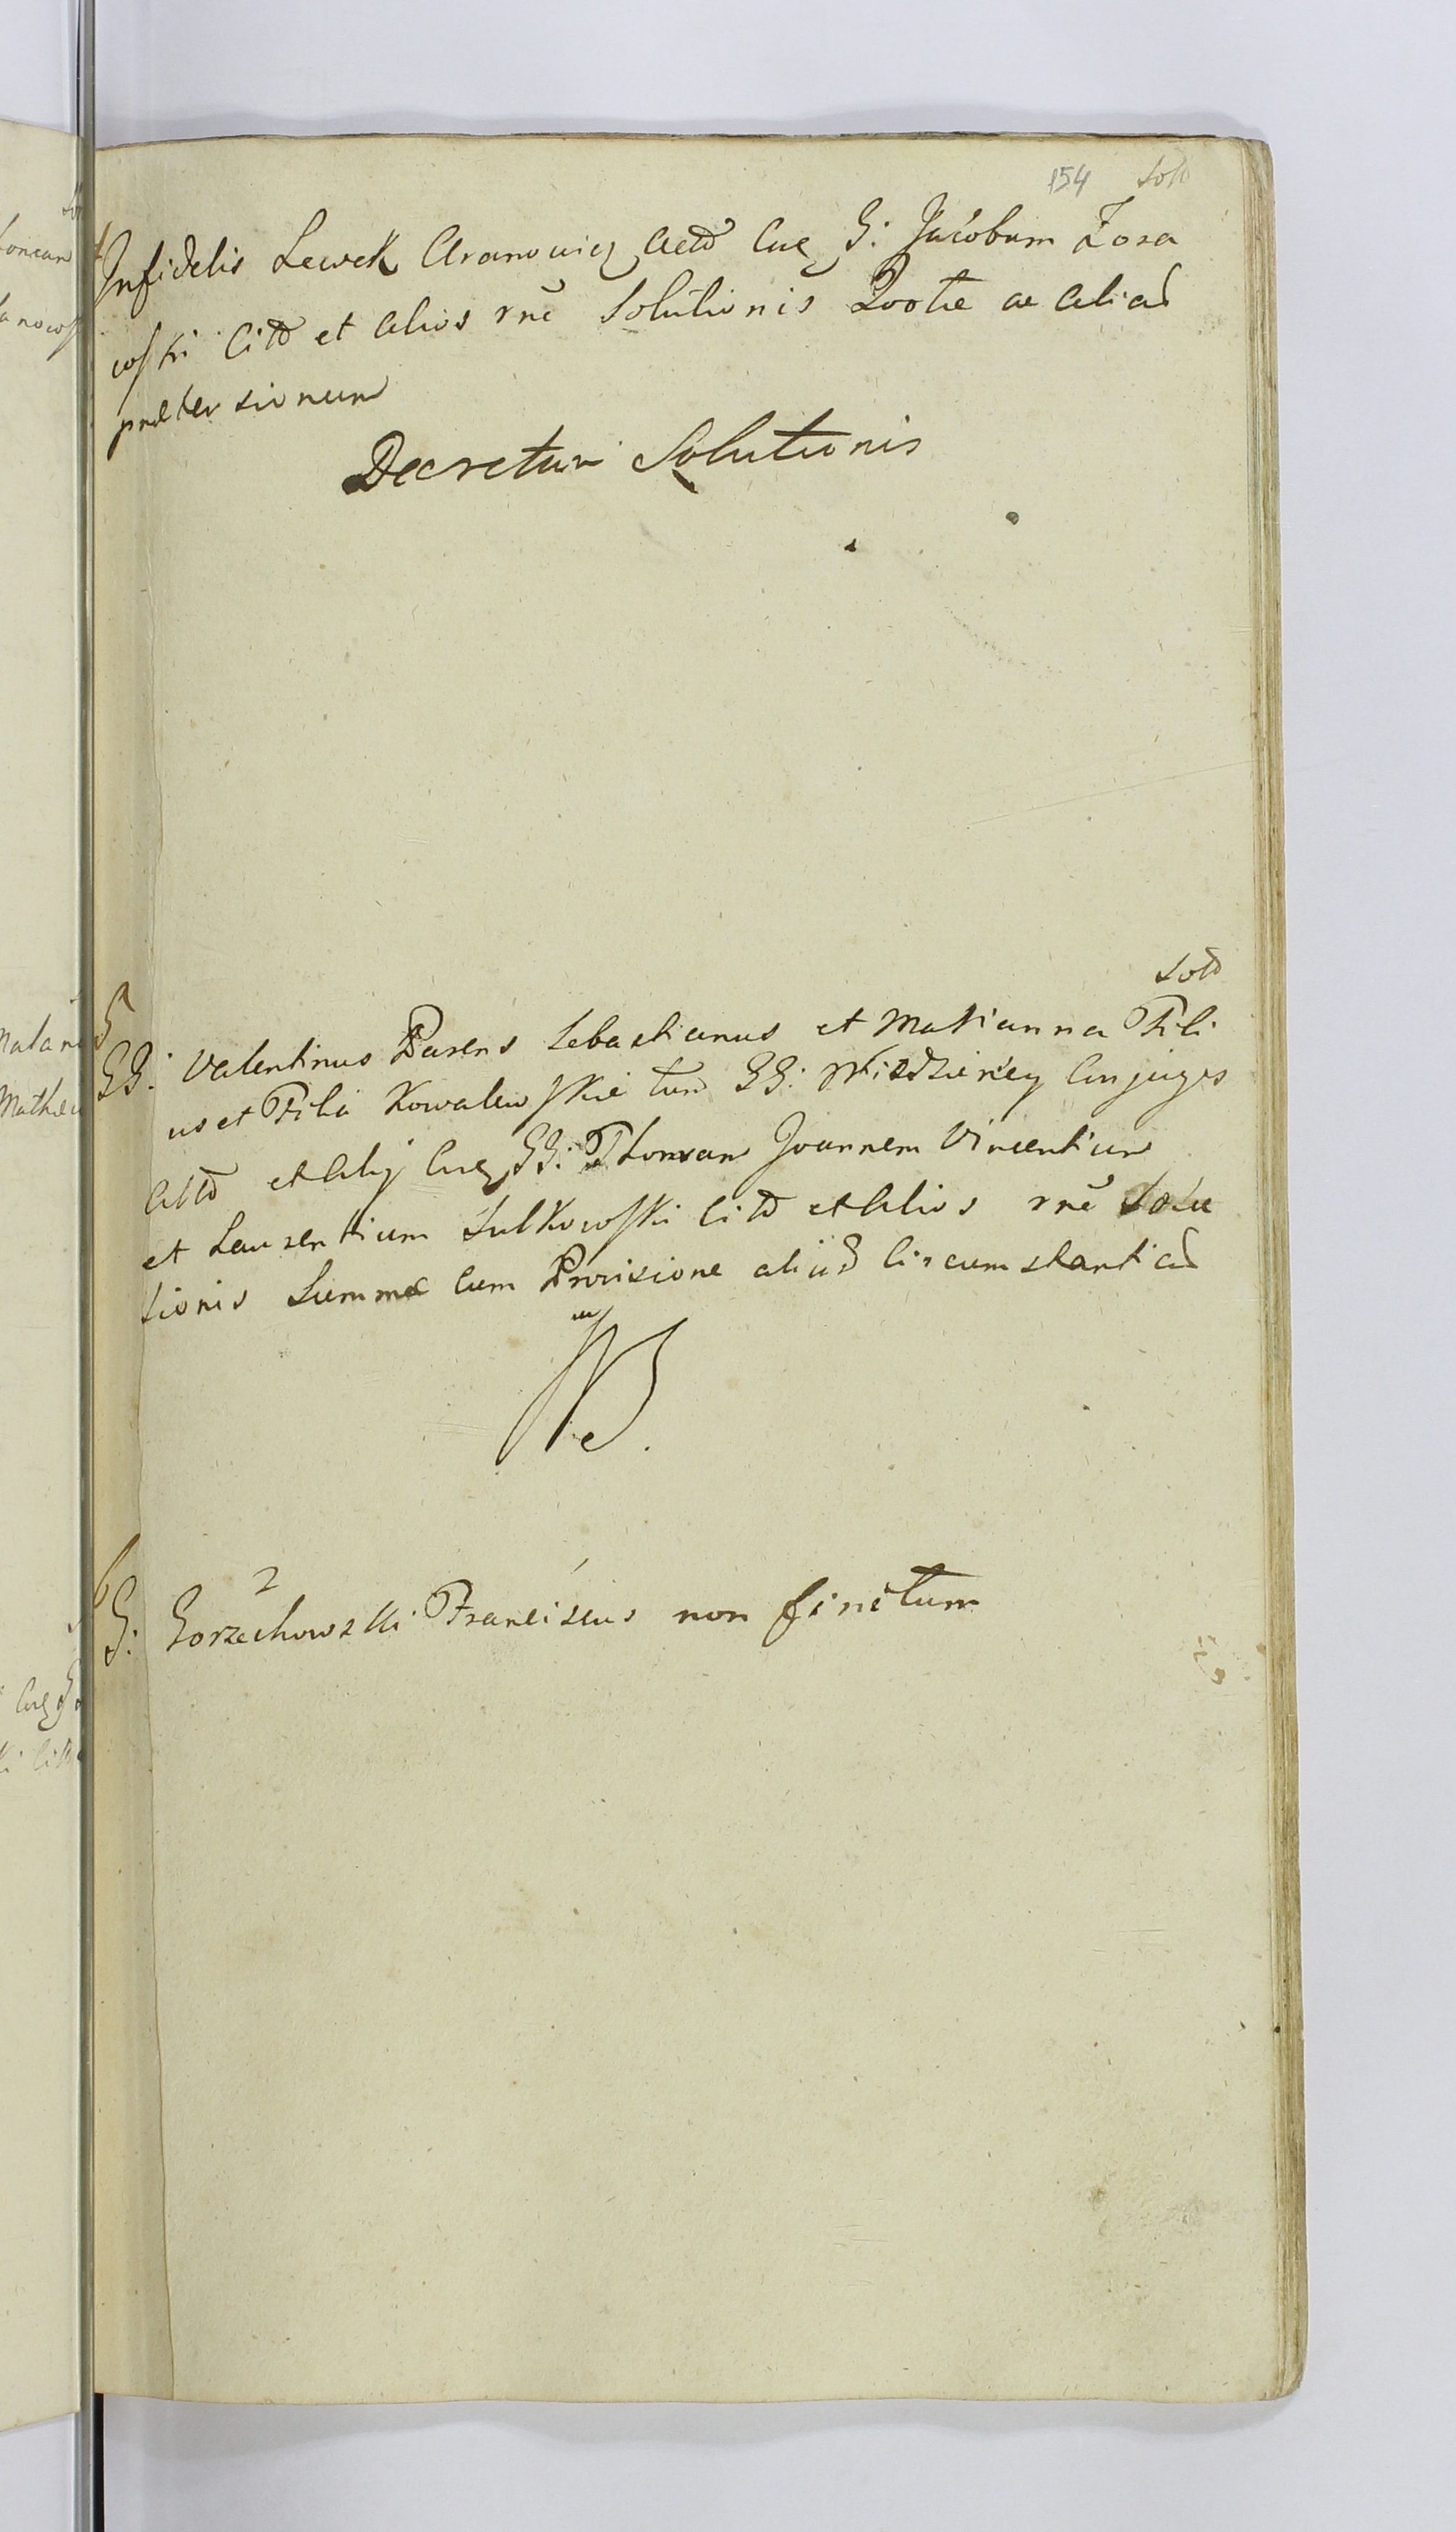 154 Sold
4
Infidelis Lewek Aranowicz Actō Cu͞q G: Jacobum Zora
wski Citō et Alios rn͞e Solutionis Quotæ ac Aliad
prætersionum
Decretum Solutionis
Sold
5
GG: Valentinus Parens Sebastianus et Marianna Fili
us et Filia Kowalewskie tum GG: Conjuges
Actō et Alij Cu͞q GG: Thomam Joannem Vincentium
et Laurentium Sulkowski Citō et Alios rn͞e Solu
tionis Summæ Cum Provisione aliisd Circumstantiad
6
2
G: Gorzechowski Franciscus non finitum